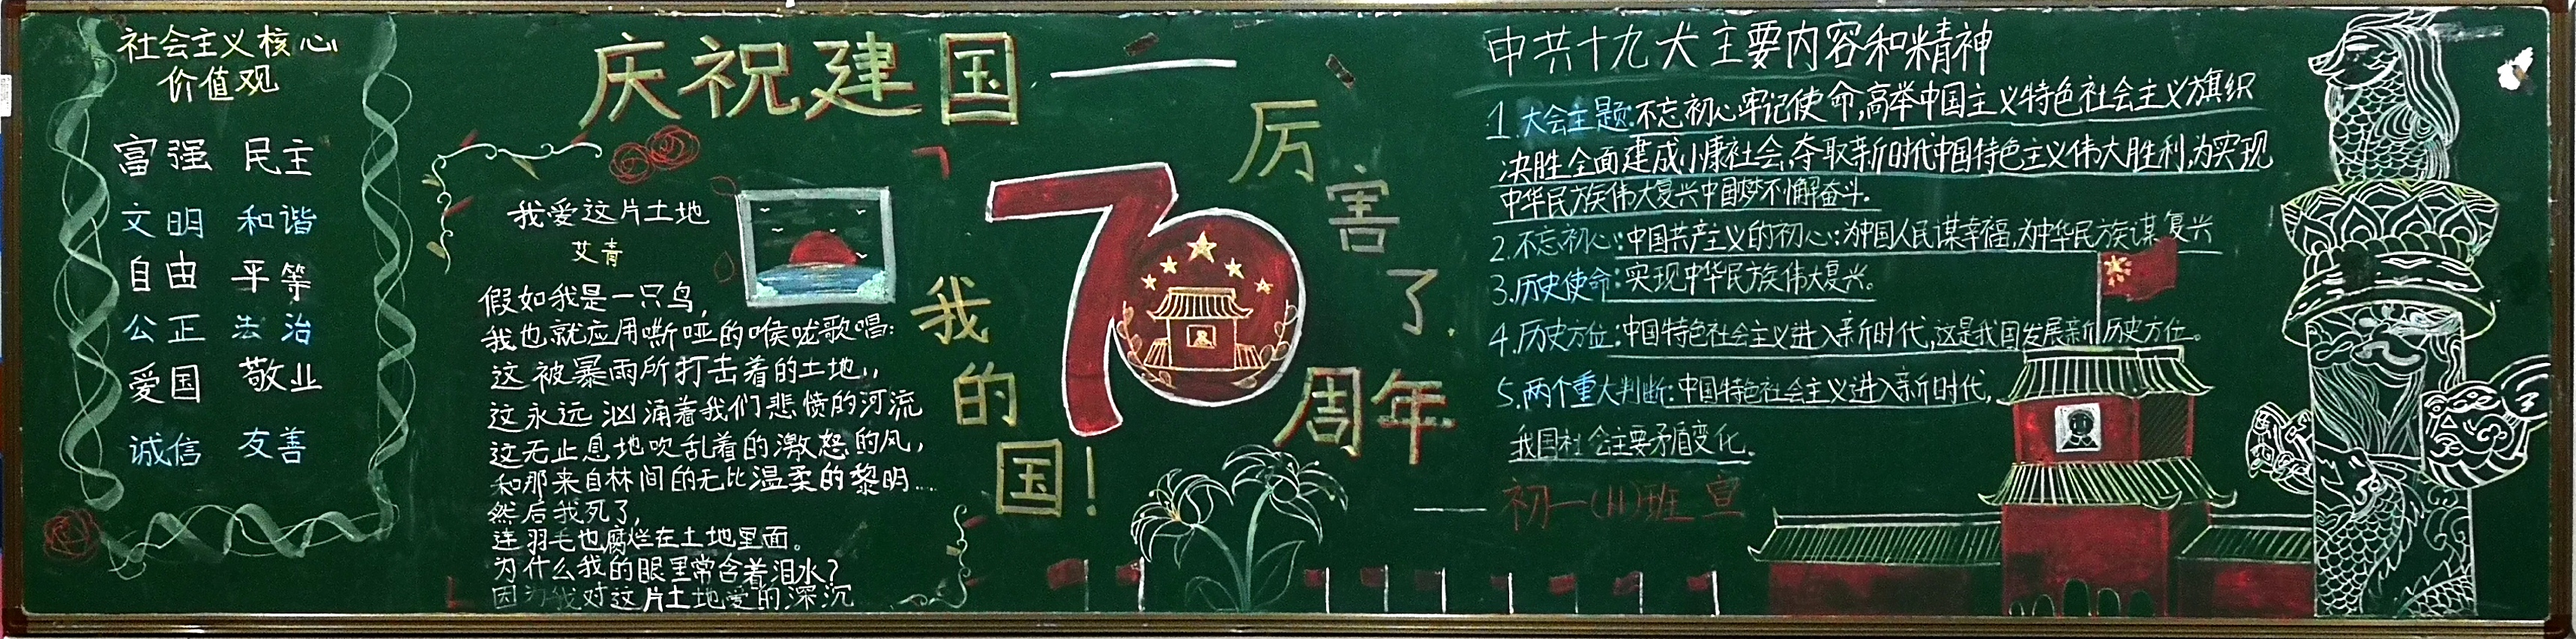 社会主义核心
价值观
富强 民主
文明 和谐
自由 平等
公正 法治
爱国 敬业
诚信 友善
庆祝建国——
70
周年
厉害了
我的国！
我爱这片土地
艾青
假如我是一只鸟,
我也就应用嘶哑的喉咙歌唱:
这被暴雨所打击着的土地,,
这永远汹涌着我们悲愤的河流
这无止息地吹乱着的激怒的风,
和那来自林间的无比温柔的黎明...
然后我死了,
连羽毛也腐烂在土地里面。
为什么我的眼里常含着泪水?
因为我对这片土地爱的深沉
中共十九大主要内容和精神
1.大会主题:不忘初心牢记使命,高举中国主义特色社会主义旗织
决胜全面建成小康社会,夺取新时代中国特色主义伟大胜利,为实现
中华民族伟大复兴中国梦不懈奋斗。
2.不忘初心:中国共产主义的初心:为中国人民谋幸福,为中华民族谋复兴
3.历史使命:实现中华民族伟大复兴。
4.历史方位:中国特色社会主义进入新时代,这是我国发展新历史方位。
5.两个重大判断:中国特色社会主义进入新时代,
我国社会主要矛盾变化。
——初一(11)班 宣